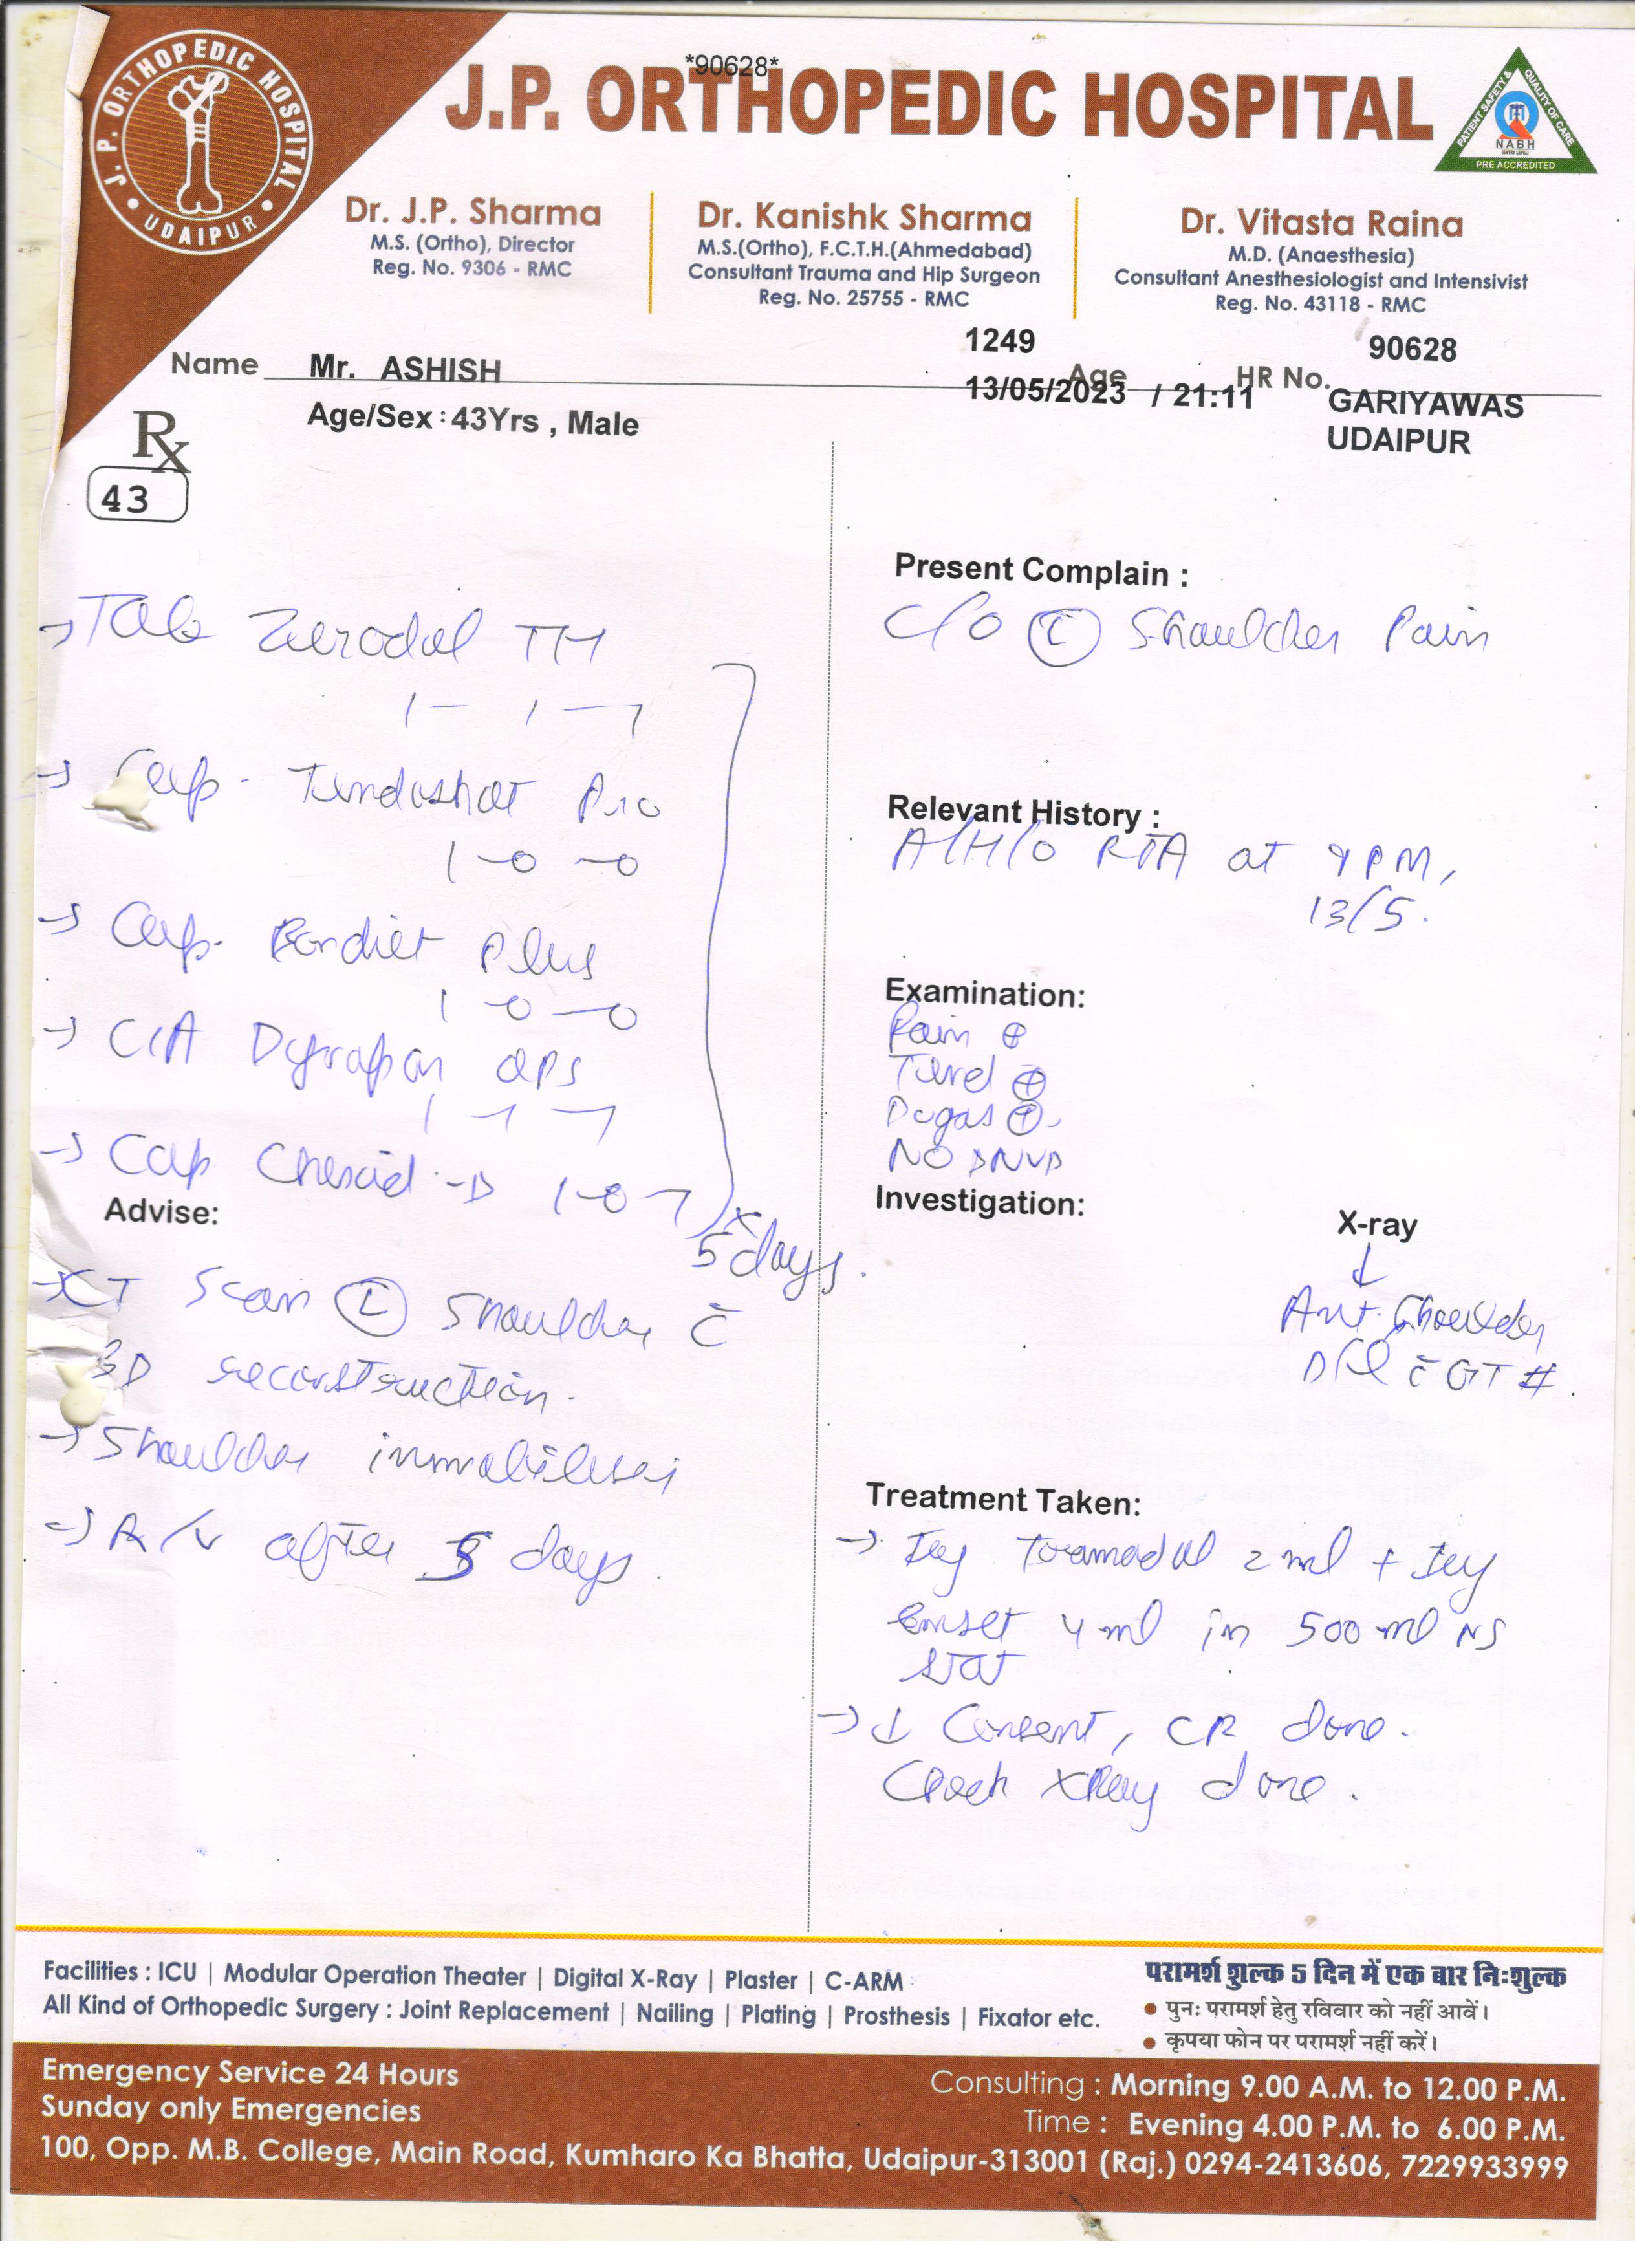 *90628*
J.P. ORTHOPEDIC HOSPITAL
J. P. ORTHOPEDIC HOSPITAL
UDAIPUR
PATIENT SAFETY & QUALITY OF CARE
NABH
(ENTRY LEVEL)
PRE ACCREDITED
Dr. J.P. Sharma
M.S. (Ortho), Director
Reg. No. 9306 - RMC
Dr. Kanishk Sharma
M.S.(Ortho), F.C.T.H.(Ahmedabad)
Consultant Trauma and Hip Surgeon
Reg. No. 25755 - RMC
Dr. Vitasta Raina
M.D. (Anaesthesia)
Consultant Anesthesiologist and Intensivist
Reg. No. 43118 - RMC
1249
90628
Name Mr. ASHISH Age HR No.
13/05/2023 / 21:11
GARIYAWAS
UDAIPUR
Age/Sex : 43Yrs , Male
Rx
43
→ Tab Zerodol TH
1 - 1 - 1
→ Cap. Tendoshot Pro
1 - 0 - 0
→ Cap. Plus
1 - 0 - 0
→ C/A Dynapar QPS
1 - 1 - 1
→ Cap - D 1 - 0 - 1
x 5 days.
Advise:
→ CT Scan (L) Shoulder c̄
3D reconstruction.
→ Shoulder immobiliser
→ R/v after 5 days.
Present Complain :
C/O (L) Shoulder Pain
Relevant History :
A/H/O RTA at PM,
13/5.
Examination:
Pain ⊕
Tend ⊕
Dugas ⊕.
NO DNVD
Investigation:
X-ray
↓
Ant. Shoulder
D/L c̄ GT #.
Treatment Taken:
→ Inj Tramadol 2 ml + Inj
Emset 4 ml in 500 ml NS
stat
→ ↓ Consent, CR done.
Check Xray done.
Facilities : ICU | Modular Operation Theater | Digital X-Ray | Plaster | C-ARM
All Kind of Orthopedic Surgery : Joint Replacement | Nailing | Plating | Prosthesis | Fixator etc.
परामर्श शुल्क 5 दिन में एक बार निःशुल्क
● पुनः परामर्श हेतु रविवार को नहीं आवें।
● कृपया फोन पर परामर्श नहीं करें।
Emergency Service 24 Hours
Sunday only Emergencies
Consulting : Morning 9.00 A.M. to 12.00 P.M.
Time : Evening 4.00 P.M. to 6.00 P.M.
100, Opp. M.B. College, Main Road, Kumharo Ka Bhatta, Udaipur-313001 (Raj.) 0294-2413606, 7229933999